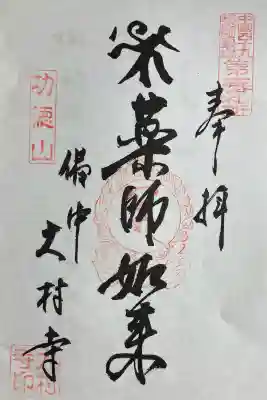 奉拝
薬師如来
備中
大村寺
功徳山